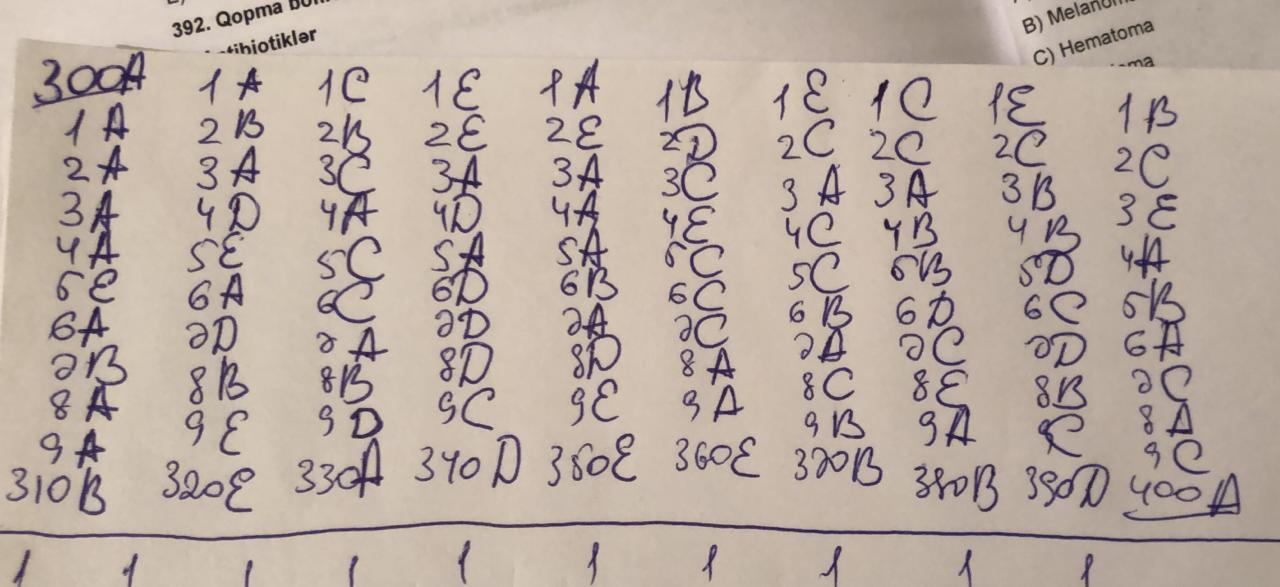 392. Qopma
B) Melanom
tibiotiklər
C) Hematoma
ma
300A 1 A 1C 1E 1A 1B 1E 1C 1E 1B
1 A 2 B 2B 2E 2E 2D 2C 2C 2C 2C
2 A 3 A 3C 3A 3A 3C 3 A 3A 3B 3E
3A 4D 4A 4D 4A 4E 4C 4B 4B 4A
4A 5E 5C 5A 5A 5C 5C 5B 5D 5B
5E 6A 6C 6D 6B 6C 6B 6D 6C 6A
6A 7D 7A 7D 7A 7C 7A 7C 7D 7C
7B 8B 8B 8D 8D 8A 8C 8E 8B 8A
8A 9E 9D 9C 9E 9A 9B 9A 9C 9C
9A 320E 330A 340D 350E 360E 370B 380B 390D 400A
310B
1 1 1 1 1 1 1 1 1 1